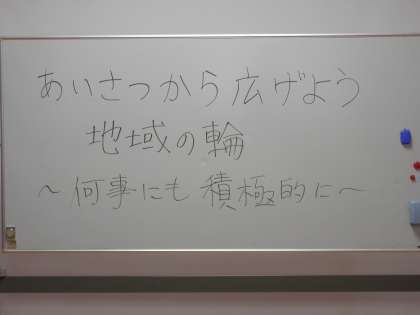 あいさつから広げよう
地域の輪
～何事にも積極的に～